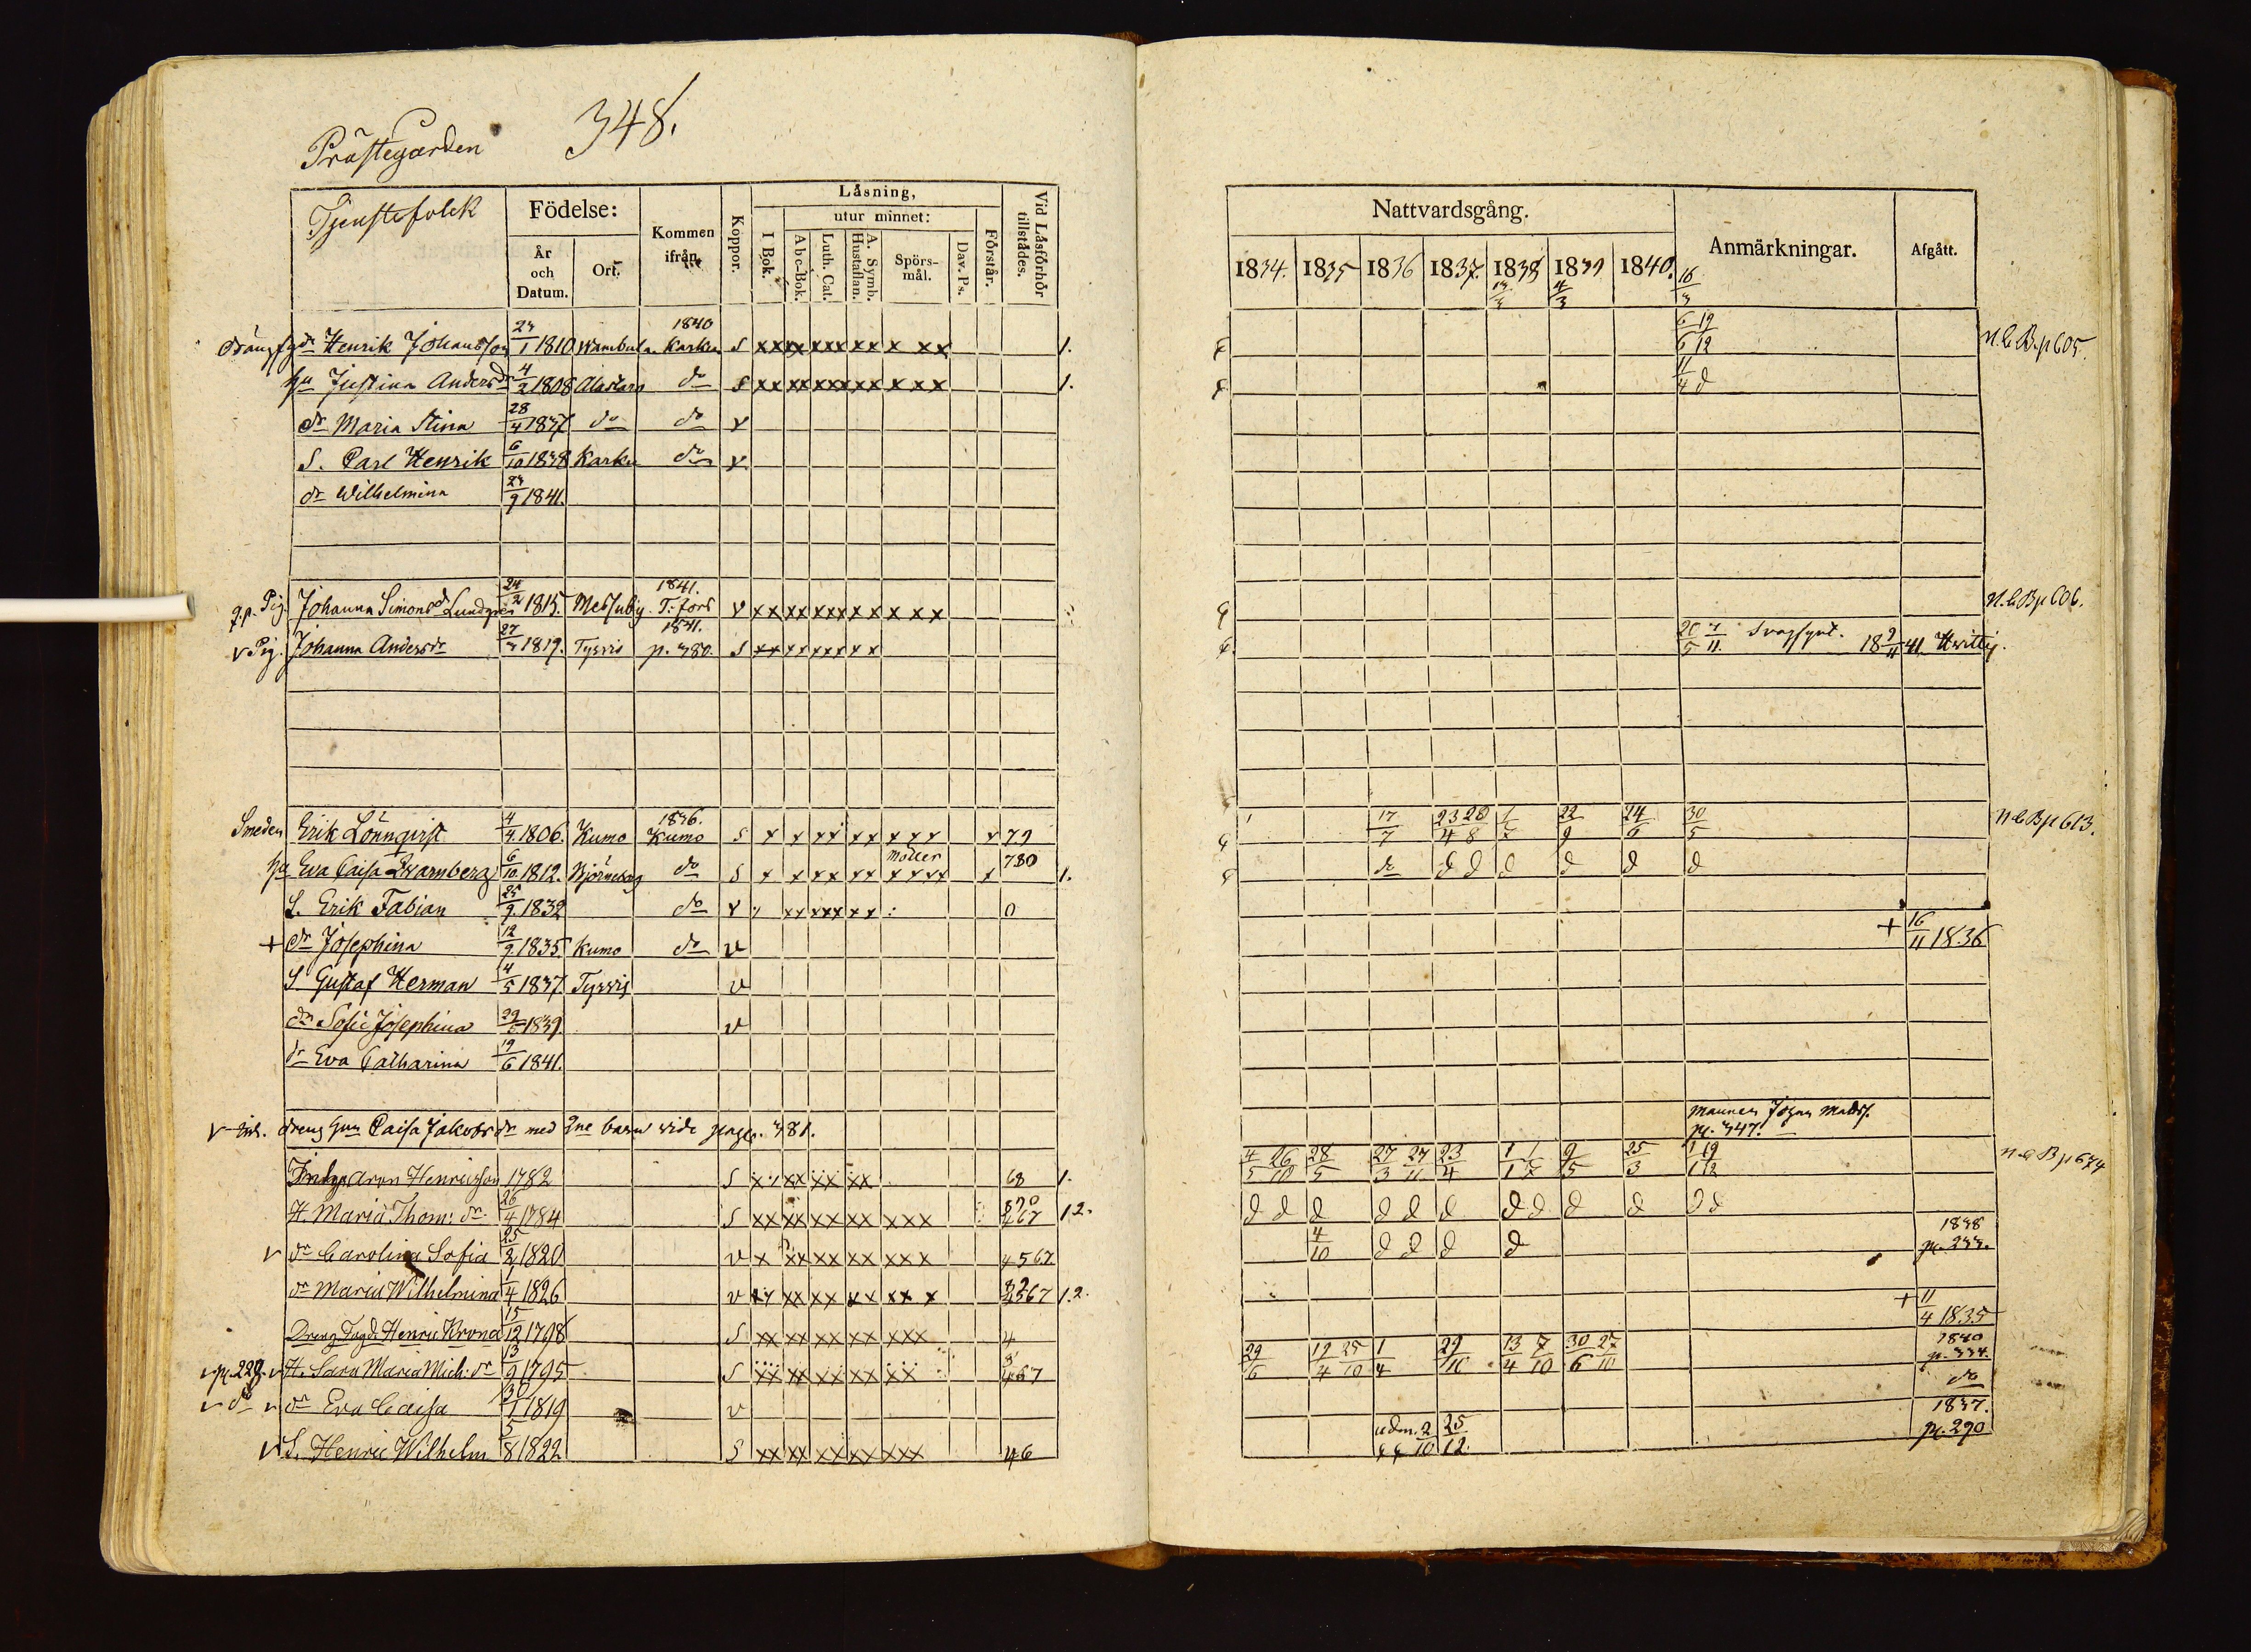 348.
Prästegården
Tjenstefolck
Födelse:
År och Datum.
Ort.
Kommen ifrån
Koppor.
Läsning,
utur minnet:
I Bok.
Abc-Bok.
Luth. Cat.
A. Symb. Hustaflan.
Spörs-mål.
Dav. Ps.
Förstår.
Vid Läsförhör tillstädes.
Henrik Johansson 23/1 1810 Wambula 1840 Karku S xx xx xxx xx x xx 1.
hu Justina Andersdr 4/2 1808 Alastaro do S xx xx xxx xx x xx 1.
dr Maria Stina 28/4 1837 do do v
S. Carl Henrik 6/10 1838 Karku do v
dr Wilhelmina 23/9 1841.
Pig. Johanna Simonsdr Lundgren 24/2 1815. Messuby 1841. T:fors v xx xx xxx xx x xx
v Pig. Johanna Andersdr 27/3 1819. Tyrvis 1841. p. 380. S xx xx xxx xx
Smeden Erik Lönnqvist 4/4 1806. Kumo 1836. Kumo S x x xx xx xxx x 79
hu Eva Caisa Qvarnberg 6/10 1812. Björneborg do S x x xx xx Möller xxxx x 780 1.
S. Erik Fabian 25/9 1832 do v xx xxx xx 0
+ dr Josephina 12/9 1835 Kumo do v
S. Gustaf Herman 4/5 1837 Tyrvis v
dr Sofie Josephina 29/5 1839. v
dr Eva Catharina 19/6 1841.
v Inh. dreng hun Caisa Jakobsdr med 2ne barn vide page. 381.
Aron Henricsson 1782 S xx xx xx 68 1.
H. Maria Thom: dr 26/4 1784 S xx xx xx xx xxx 12.
v dr Carolina Sofia 25/2 1820 v x xx xx xx xxx 4567.
dr Maria Wilhelmina 1/4 1826 v xx xx xx xx x 12.
Dreng Henric Krona 15/12 1798 S xx xx xx xx xxx 4
v p. 229. v H. Sara Maria Mich: dr 13/9 1795 S xx xx xx xx xx 467
v do v dr Eva Caisa 30/1 1819 v
v S. Henric Wilhelm 5/8 1822 S xx xx xx xx xxx 46
Nattvardsgång.
Anmärkningar.
Afgått.
1834. 1835 1836 1837. 1838 1839 1840.
16/3
6/6 19/12
n.l.B.p 605.
11/4 d
n.l.B p 606.
26/5 7/11 Svagsynt. 18 9/11 41 Hvittis.
17/7 23/4 20/8 1/7 22/9 24/6 30/5 n.l.B p 613.
do d d d d d d
+ 16/11 1836
mannen Johan Matss.
p. 347.
4/5 26/10 28/5 27/3 27/11 23/4 1/1 1/7 9/5 25/3 1/1 19/12 n.l.B p 674
d d d d d d d d d d d d
4/10 d d d d 1838 p. 233.
+ 11/4 1835
29/6 12/4 25/10 1/4 29/10 13/4 7/10 30/6 27/10 1840 p. 334.
do
adm. 2/10 25/12 1837. p. 290